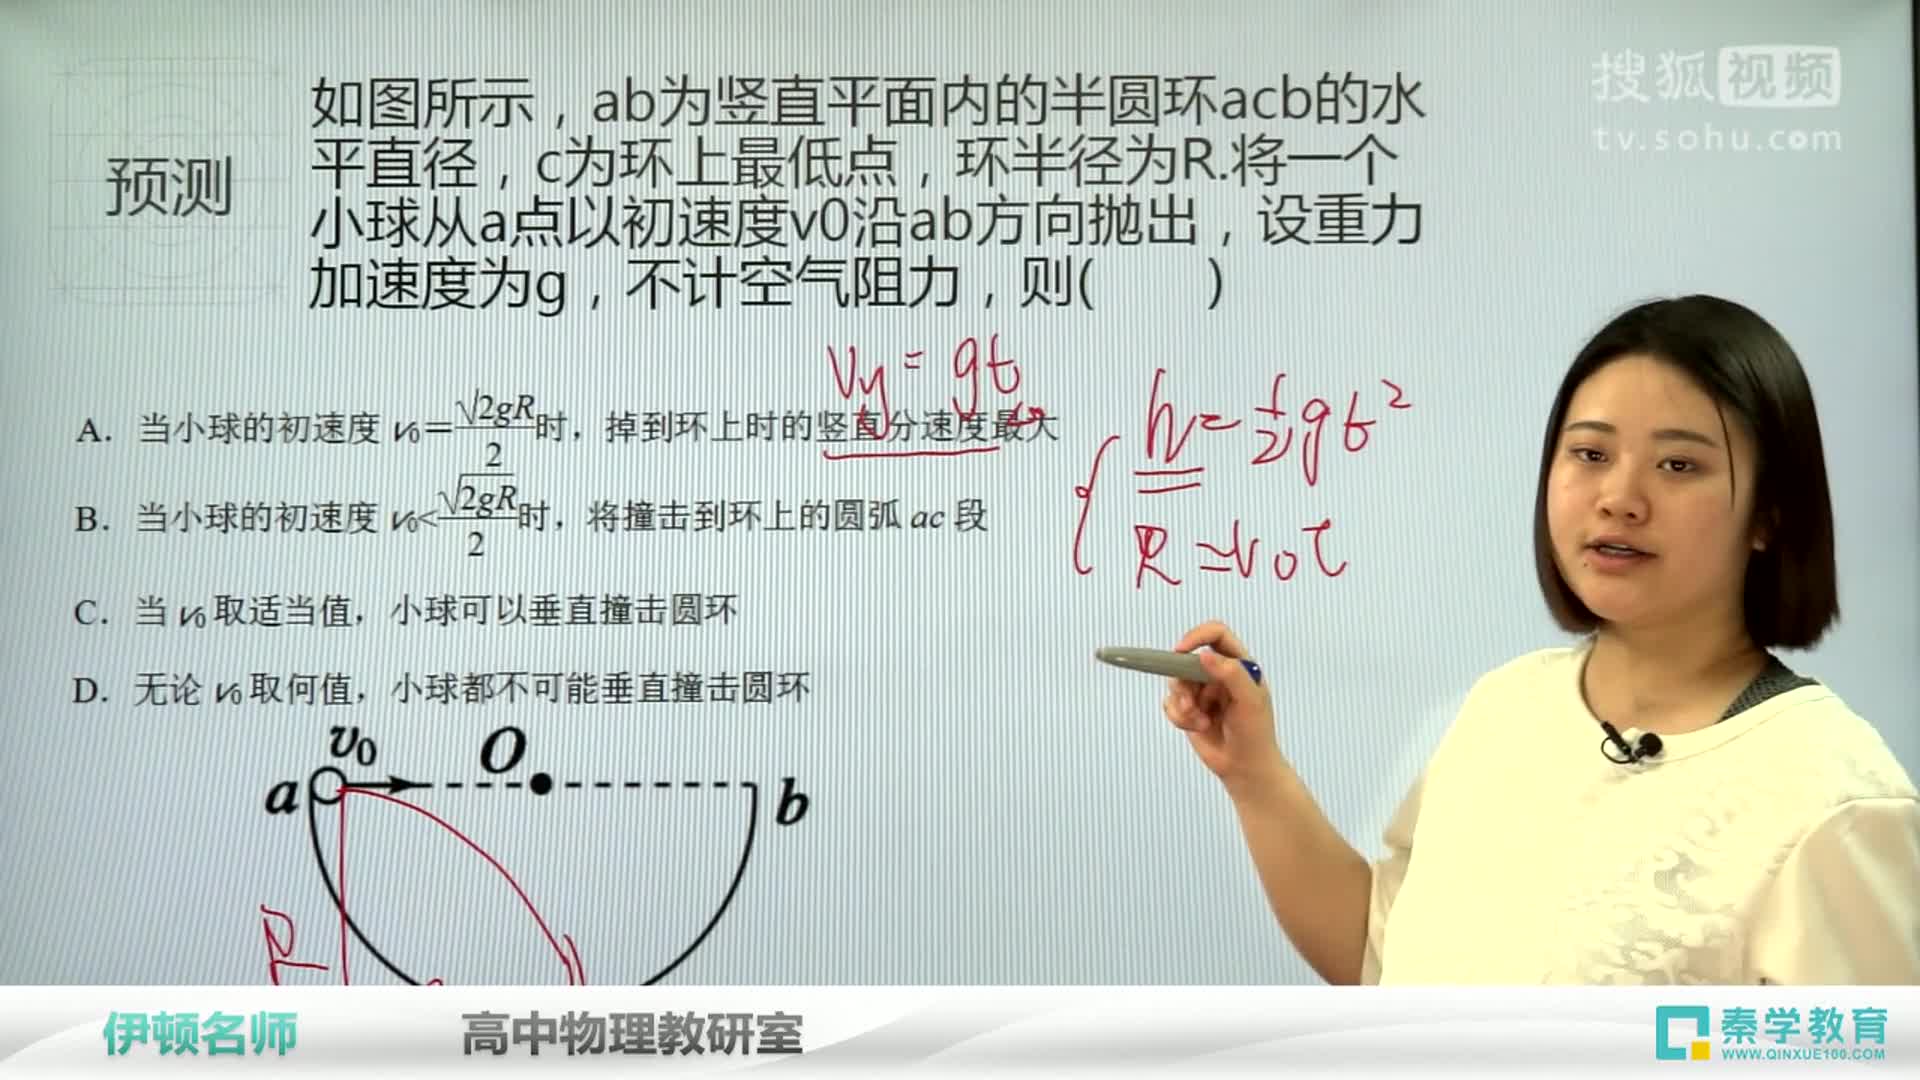 搜狐视频
tv.sohu.com
预测
如图所示，ab为竖直平面内的半圆环acb的水
平直径，c为环上最低点，环半径为R.将一个
小球从a点以初速度v0沿ab方向抛出，设重力
加速度为g，不计空气阻力，则(　　)
Vy = gt
A．当小球的初速度 v₀=√2gR/2时，掉到环上时的竖直分速度最大
B．当小球的初速度 v₀<√2gR/2时，将撞击到环上的圆弧 ac 段
C．当 v₀取适当值，小球可以垂直撞击圆环
D．无论 v₀取何值，小球都不可能垂直撞击圆环
h = 1/2 gt²
R = v₀t
v₀
O
a
b
R
伊顿名师
高中物理教研室
秦学教育
WWW.QINXUE100.COM